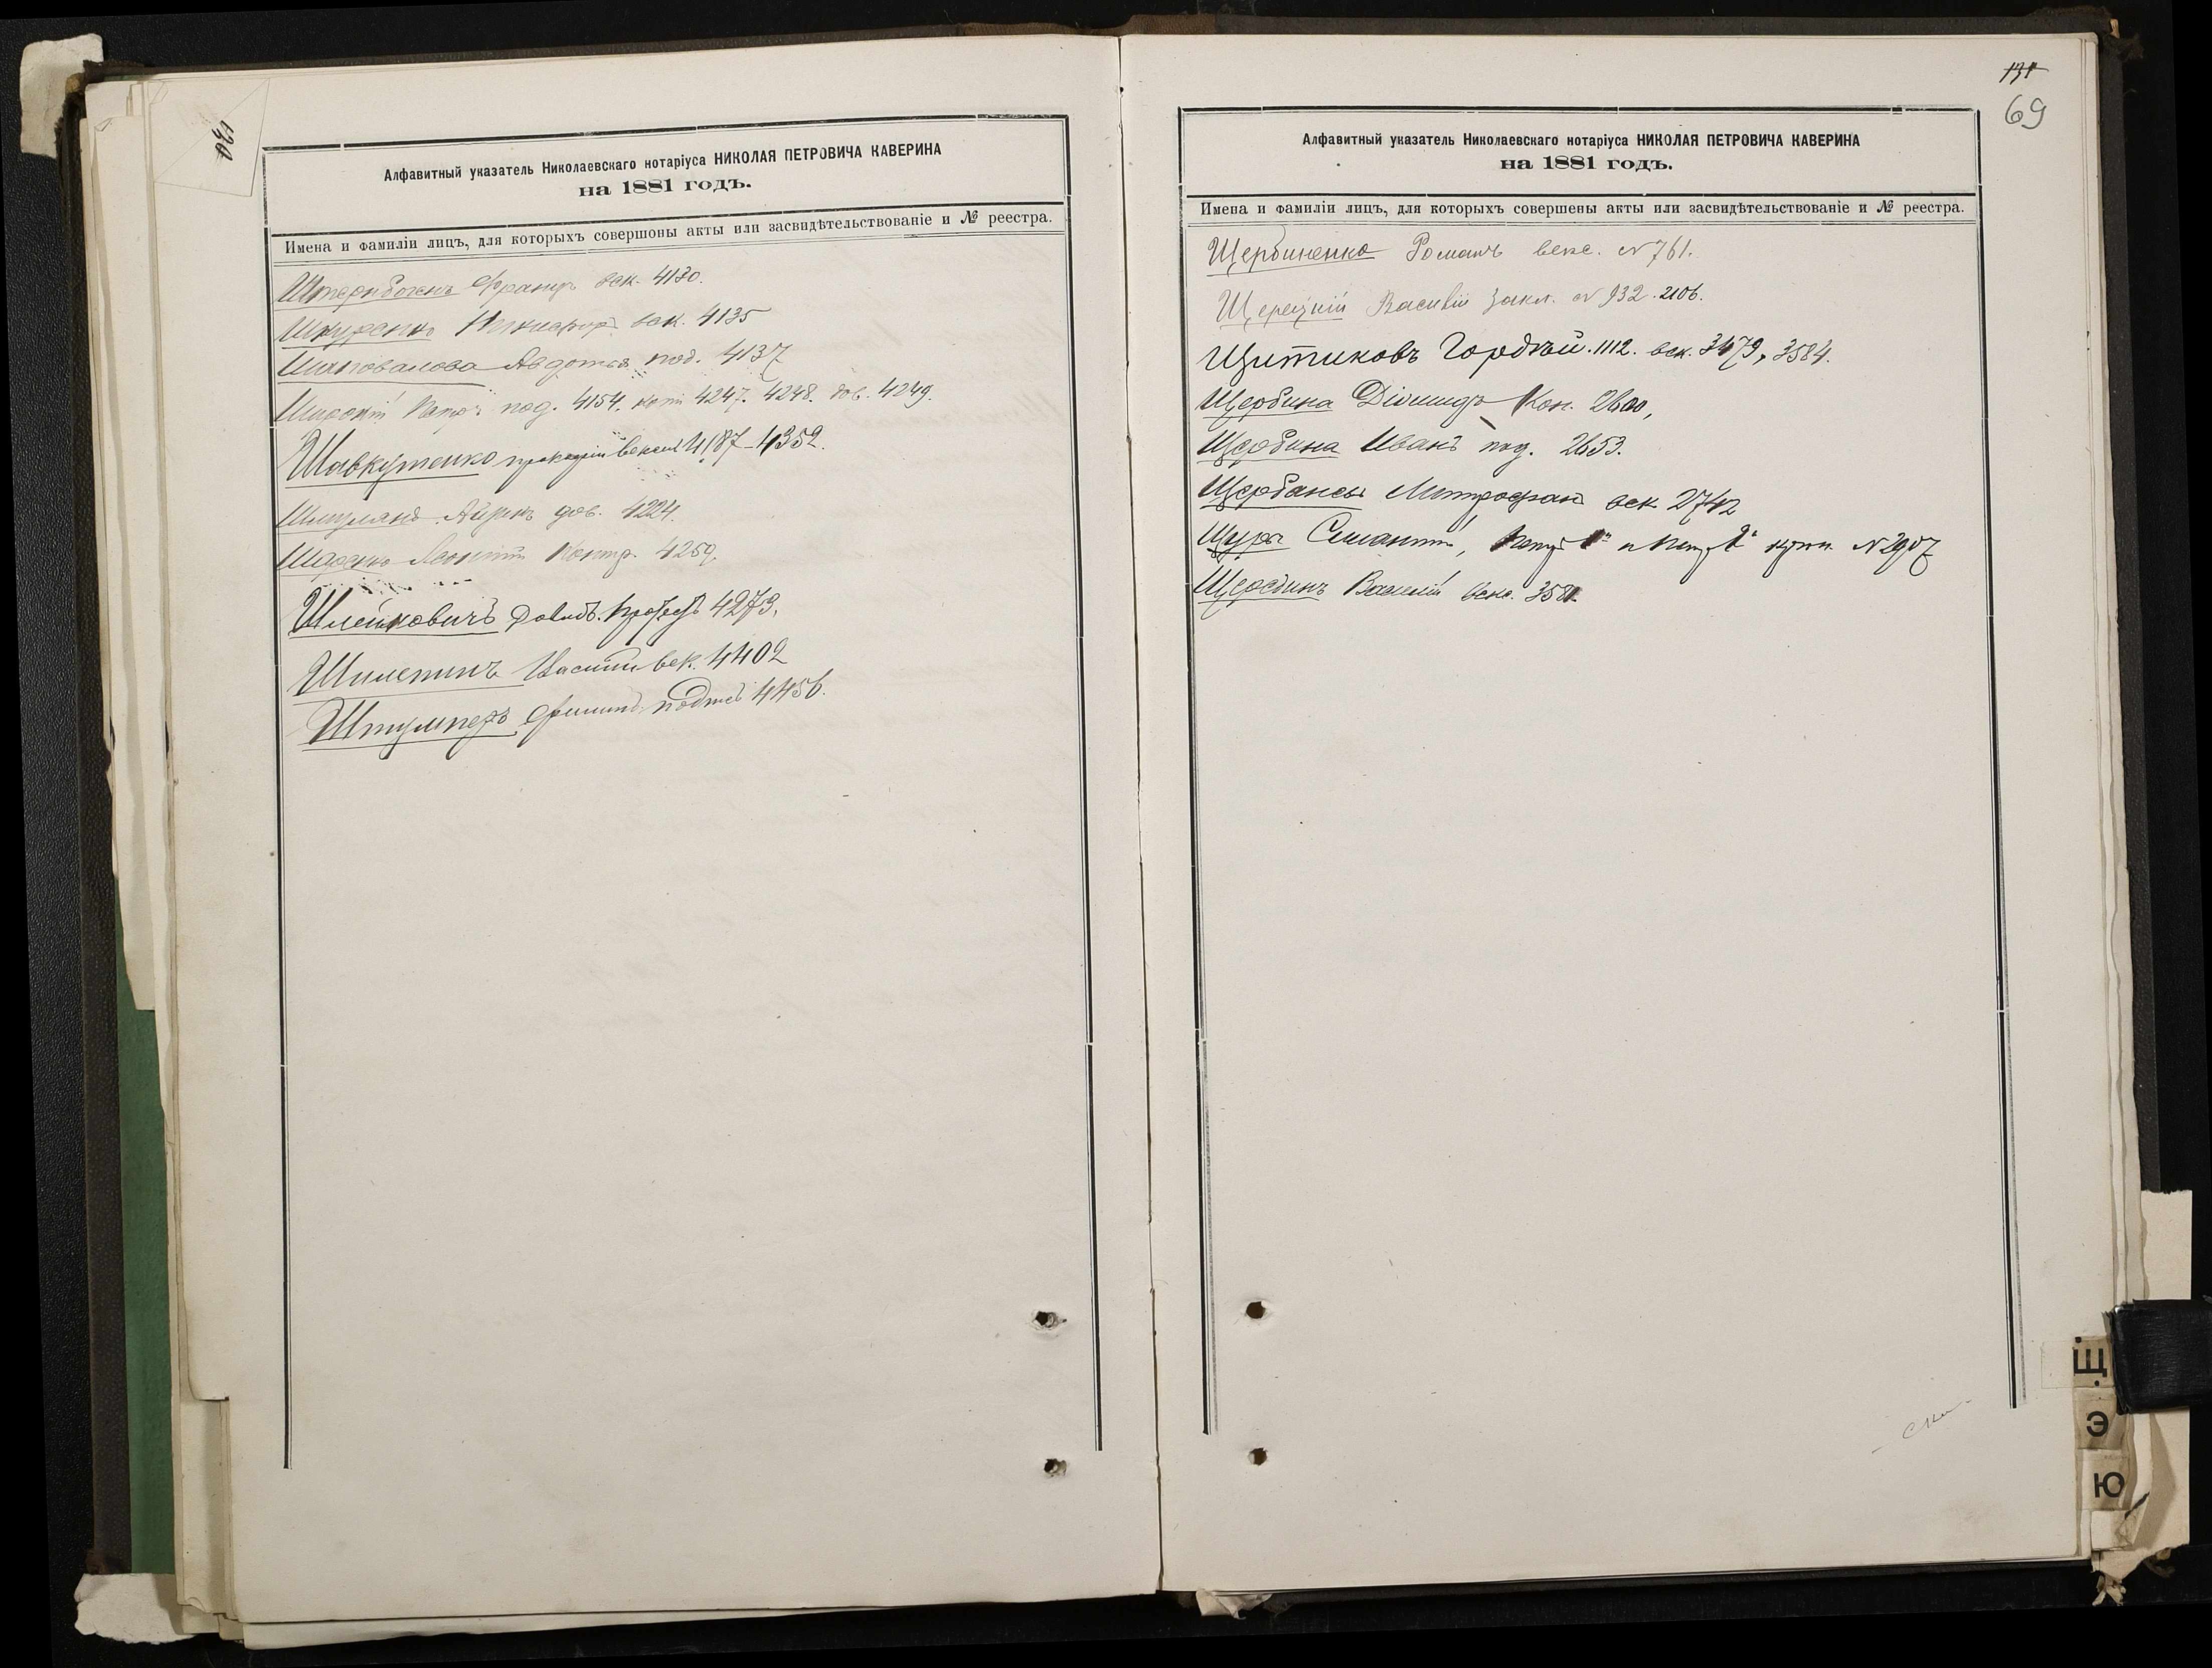 130
Алфавитный указатель Николаевскаго нотаріуса НИКОЛАЯ ПЕТРОВИЧА КАВЕРИНА
на 1881 годъ.
Имена и фамиліи лицъ, для которыхъ совершоны акты или засвидѣтельствованіе и № реестра.
Штернбогенъ Францъ век. 4130.
Шкуренко Никифоръ век. 4135
Шаповалова Авдотья под. 4137
Широкій Петръ под. 4154. 4247. 4248. дов. 4249.
Шавкутенко прокофій вексель 4187-4352.
дов. 4224.
Леонтій Контр. 4259.
Шлейковичъ Давидъ. протестъ 4273.
Василій век. 4402
Штумперъ Филиппъ подпись 4456.
131
69
Алфавитный указатель Николаевскаго нотаріуса НИКОЛАЯ ПЕТРОВИЧА КАВЕРИНА
на 1881 годъ.
Имена и фамиліи лицъ, для которыхъ совершены акты или засвидѣтельствованіе и № реестра.
Щербиненко Романъ векс. № 761.
Щерецкій Василій Закл. № 932. 2106.
Щитиковъ Гордѣй. 1112. век. 3479, 3584.
Щербина Кон. 2600,
Щербина Иванъ под. 2653.
Митрофанъ век 2742
Щуръ Петръ 1й и Петръ 2й купч. № 2907
Щербинъ Василій векс. 3581.
Щ
Э
Ю